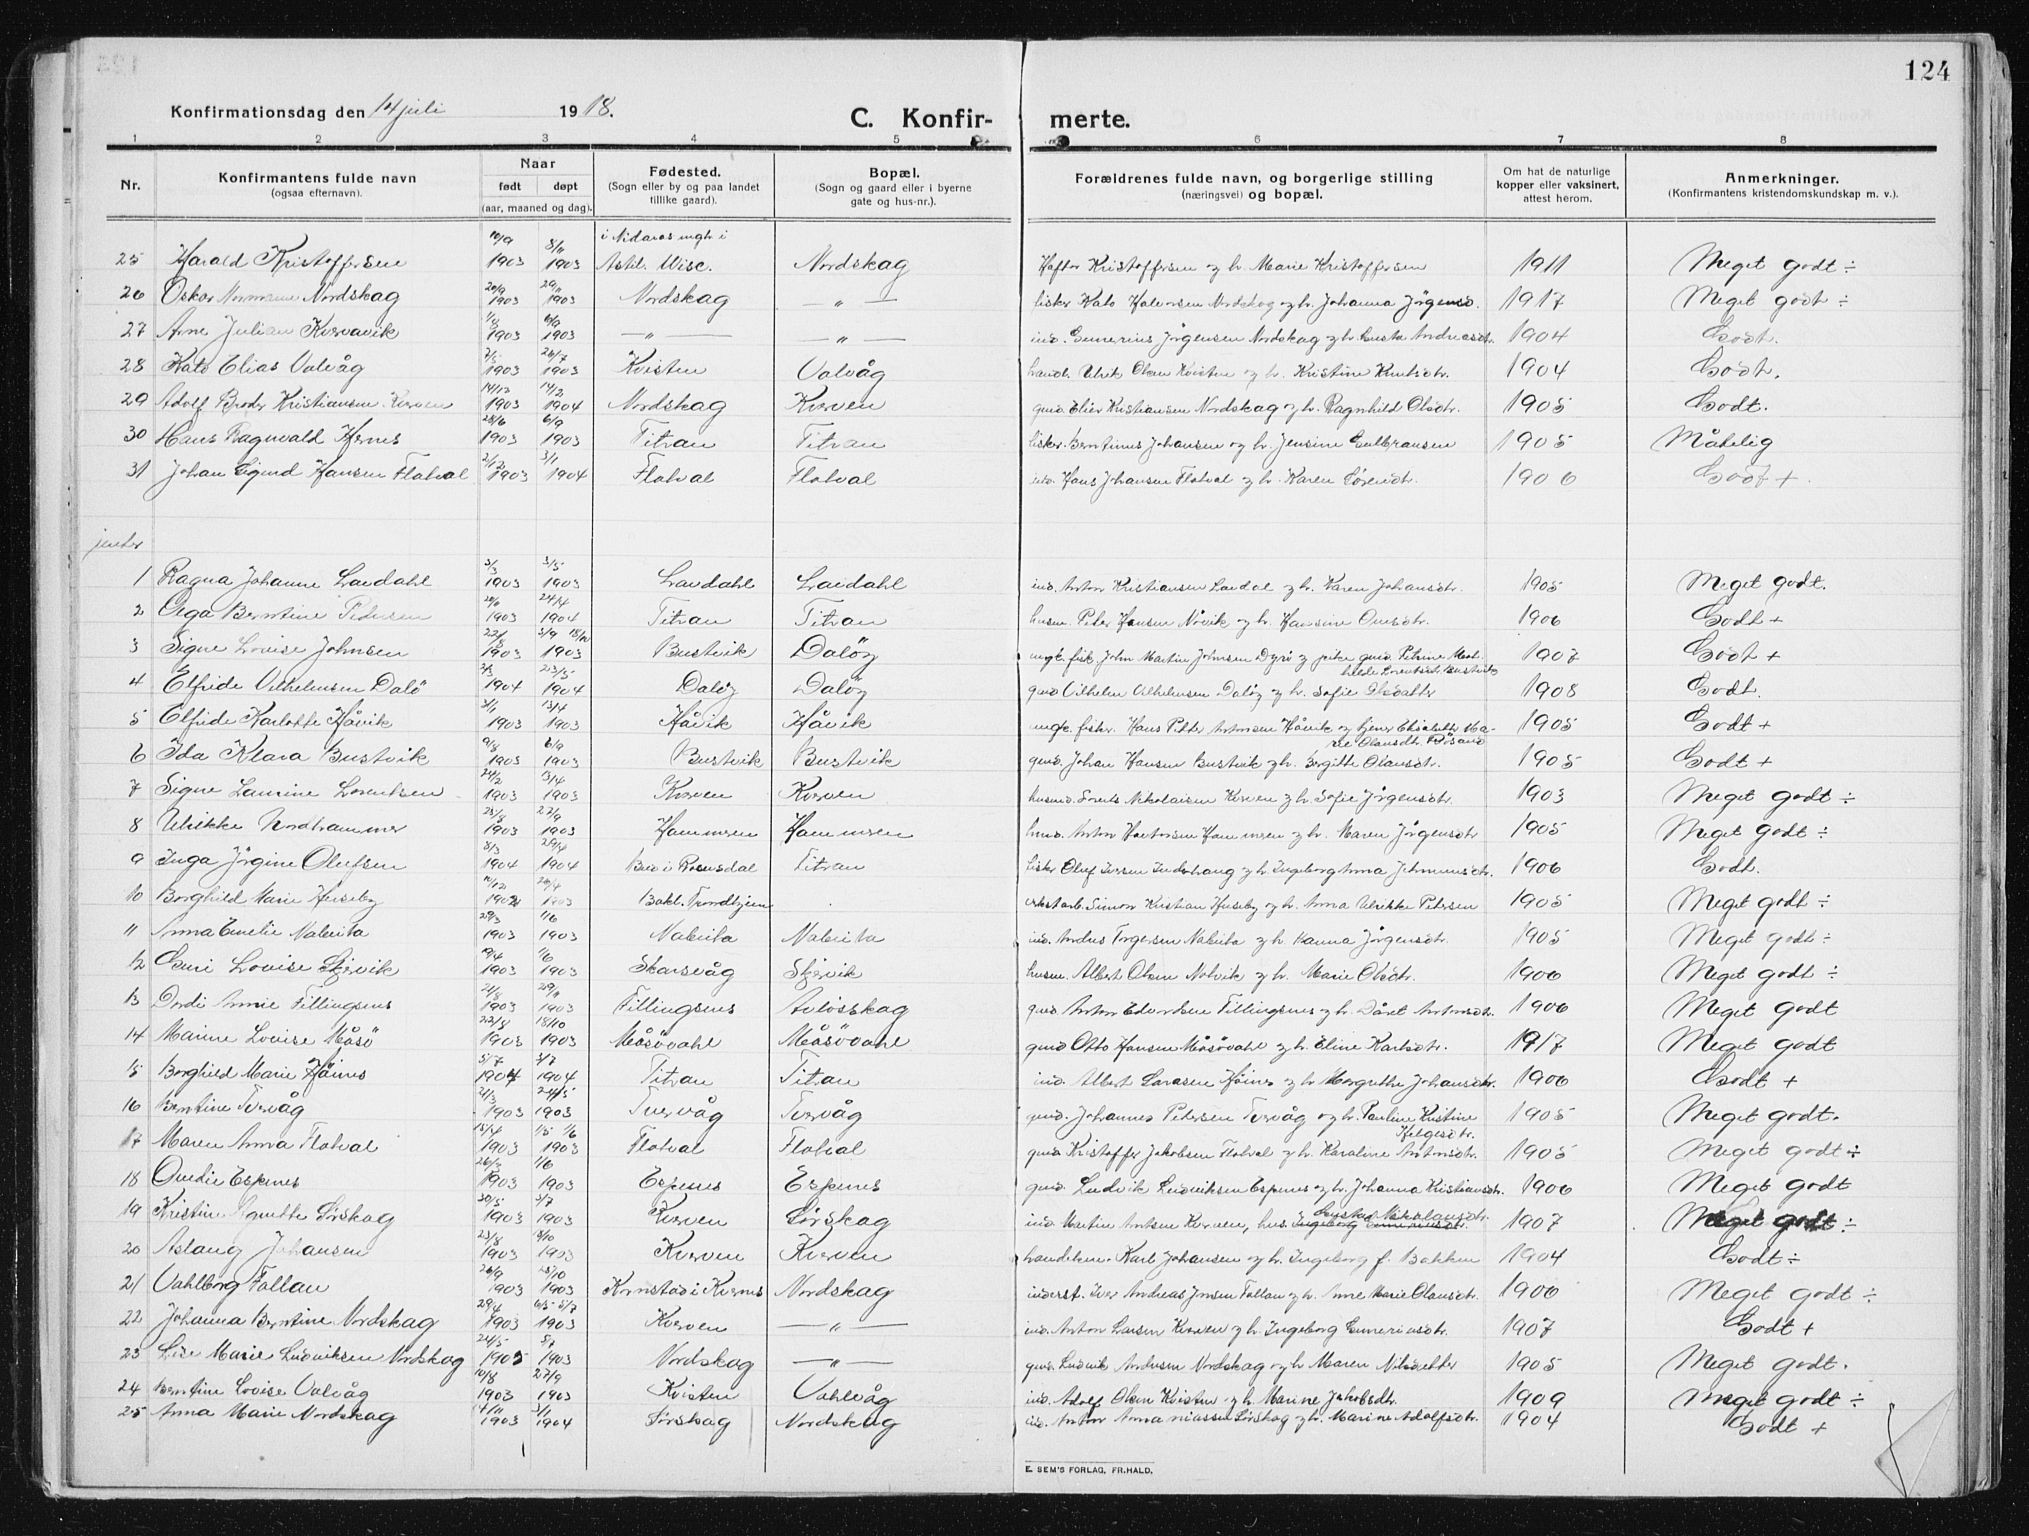 124
Konfirmationsdag den 14 juli 1918.
C. Konfir- merte.
1 2 3 4 5 6 7 8
Nr. Konfirmantens fulde navn (ogsaa efternavn). Naar født døpt (aar, maaned og dag). Fødested. (Sogn eller by og paa landet tillike gaard). Bopæl. (Sogn og gaard eller i byerne gate og hus-nr.). Forældrenes fulde navn, og borgerlige stilling (næringsvei) og bopæl. Om hat de naturlige kopper eller vaksinert, attest herom. Anmerkninger. (Konfirmantens kristendomskundskap m. v.).
25 Harald Kristoffersen 10/9 1903 8/11 1903 i Nidaros mgh i Nordskag Haftor Kristoffersen og h. Marie Kristoffersen 1911 Meget godt ÷
26 Oskar Normann Nordskag 20/9 1903 29/11 1903 Nordskag — „ — fisker Kato Halvorsen Nordskag og h. Johanna Jörgensd. 1917 Meget godt ÷
27 Arne Julian Kvervavik 1/8 1903 6/9 1903 — „ — — „ — ind. Jörgensen Nordskag og h. Andreasdtr. 1904 Godt.
28 Kato Elias Valvåg 1903 26/7 1903 Kvisten Valvåg Ulrik Olsen Kvisten og h. Kristine Knutsdtr. 1904 Godt.
29 Adolf Broder Kristiansen Kverven 14/12 1903 14/2 1904 Nordskag Kverven gmd. Elier Kristiansen Nordskag og h. Ragnhild Olsdtr. 1905 Godt.
30 Hans Ragnvald Hernes 28/6 1903 6/9 1903 Titran Titran fisker Berntinus Johansen og h. Jensine Gulbransen 1905 Måtelig
31 Johan Sigurd Hansen Flatval 2/12 1903 3/1 1904 Flatval Flatval ind. Hans Johansen Flatval og h. Karen Sörensdtr. 1906 Godt +.
jenter
1 Ragna Johanne Laedahl 3/3 1903 3/5 1903 Laedahl Laedahl ind. Anton Kristiansen Laedal og h. Karen Johansdtr. 1905 Meget godt.
2 Olga Berntine Pedersen 1903 24/4 1904 Titran Titran husm. Peter Hansen Növik og h. Hansine Onesdtr. 1906 Godt +
3 Signe Lovise Johnsen 22/8 1903 3/9 18/10 1903 Bustvik Daløy ungk. fisk. John Martin Johnsen Dyrö og pike Petrine Mathilde Lorentsdtr. Bustvik 1907 Godt +
4 Elfride Vilhelmsen Dalö 2/3 1904 23/5 1904 Daløy Daløy gmd Vilhelm Vilhelmsen Daløy og h. Sofie 1908 Godt.
5 Elfride Karlotte Håvik 3/1 1903 13/4 1903 Håvik Håvik ungk. fisker. Hans Petter Antonsen Håvik og tjener Elisabeth 1905 Godt +
6 Ida Klara Bustvik 9/8 1903 6/9 1903 Bustvik Bustvik gmd. Johan Hansen Bustvik og h. Bergitte Olausdtr. 1905 Godt +
7 Signe Laurine Lorentsen 24/2 1903 13/4 1903 Kverven Kverven husmd. Lorents Nikolaisen Kverven og h. Sofie Jörgensdtr. 1903 Meget godt ÷
8 Ulrikke Nordhammer 25/8 1903 27/9 1903 Hammeren Hammeren husmd. Anton Hammeren og h. Maren Jörgensdtr 1905 Meget godt ÷
9 Inga Jörgine Olufsen 8/3 1904 24/4 1904 Bud i Romsdal Titran fisker Oluf Iversen og h. Ingeborg Anna 1906 Godt.
10 Borghild Marie Huseby 10/12 1902 26/4 1903 Bakl. Trondhjem Simon Kristian Huseby og h. Anna Ulrikke Petersen 1905 Meget godt ÷
11 Anna Emelie Nabeita 29/3 1903 1/6 1903 Nabeita Nabeita ind. Andreas Torgersen Nabeita og h. Hanna Jörgensdtr. 1905 Meget godt ÷
12 Guri Lovise Skjervik 19/4 1903 1/6 1903 Skarsvåg Skjervik husm. Albert Olsen Nolvik og h. Marie Olsdtr. 1906 Meget godt ÷
13 Dordi Annie Fillingsnes 21/8 1903 29/11 1903 Fillingsnes Aulösskag gmd Anton Edvardsen Fillingsnes og h. Dåret Antonsdtr. 1906 Meget godt
14 Marine Lovise Måsö 22/8 1903 18/10 1903 Måsövahl Måsövahl gmd Otto Hansen Måsövahl og h. Eline Karlsdtr. 1917 Meget godt
15 Borghild Marie Håines 5/7 1904 3/7 1904 Titran Titran ind. Albert Larssen Håines og h. Margrethe Johansdtr. 1906 Godt +
16 Berntine Tvervåg 21/3 1903 24/5 1903 Tvervåg Tvervåg gmd. Johannes Petersen Tvervåg og h. Pauline Kristine Helgesdtr. 1905 Meget godt.
17 Maren Anna Flatval 15/4 1903 1/5 1/6 1903 Flatval Flatval gmd Kristoffer Jakobsen Flatval og h. Karoline Antonsdtr. 1905 Meget godt ÷
18 Espenes 26/3 1903 1/6 1903 Espenes Espenes gmd. Ludvik Ludviksen Espenes og h. Johanna Kristiansdtr. 1906 Meget godt
19 Kristine Agnethe Sörskag 30/5 1903 5/7 1903 Kverven Sörskag ind. Martin Antsen Kverven, hus. Nikolausdtr. 1907 Meget godt ÷
20 Aslaug Johansen 23/8 1903 18/10 1903 Kverven Kverven handelsm. Karl Johansen og h. Ingeborg f. Bakken 1904 Godt ÷
21 Valborg Follan 26/9 1903 25/10 1903 Kornstad i Kvernes Nordskag inderst. Iver Andreas Jonsen Follan og h. Anne Marie Olausdtr. 1906 Meget godt ÷
22 Johanna Berntine Nordskag 29/4 1903 6/5 5/7 1903 Kverven — „ — ind. Anton Larsen Kverven og h. Ingeborg 1907 Godt +
23 Lise Marie Ludviksen Nordskag 24/5 1903 5/7 1903 Nordskag — „ — gmd. Ludvik Andersen Nordskag og h. Maren Nilsdatter 1905 Meget godt.
24 Berntine Lovise Valvåg 10/8 1903 27/9 1903 Kvisten Vahlvåg ind. Adolf Olsen Kvisten og h. Marine Jakobsdtr. 1909 Meget godt ÷
25 Anna Marie Nordskag 17/11 1903 3/1 1904 Sörskag Nordskag ind. Anton Annaniassen Sörskag og h. Marine Adolfsdtr. 1904 Godt +
E. SEM'S FORLAG, FR.HALD.